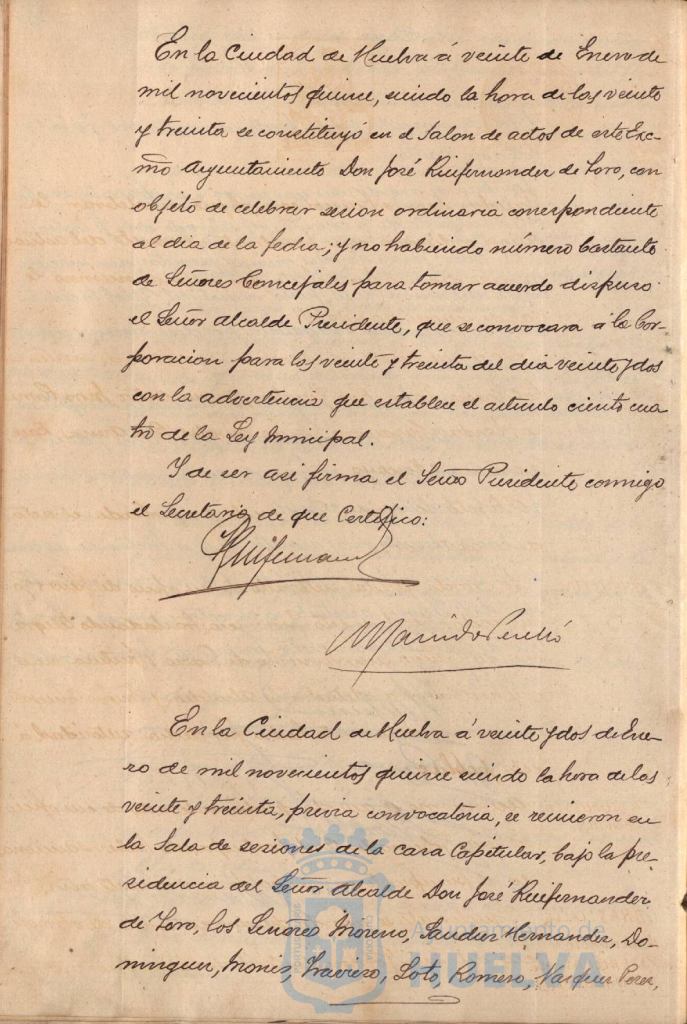 En la Ciudad de Huelva á veinte de Enero de
mil novecientos quince, siendo la hora de las veinte
y treinta se constituyó en el Salon de actos de este Exc-
mo Ayuntamiento Don José Ruifernandez de Toro, con
objeto de celebrar sesion ordinaria correspondiente
al dia de la fecha; y no habiendo número bastante
de Señores Concejales para tomar acuerdo dispuso
el Señor Alcalde Presidente, que se convocara á la Cor-
poracion para las veinte y treinta del dia veinte y dos
con la advertencia que establece el articulo ciento cua
tro de la Ley Municipal.
Y de ser asi firma el Señor Presidente conmigo
el Secretario de que Certifico:
En la Ciudad de Huelva á veinte y dos de Ene-
ro de mil novecientos quince siendo la hora de las
veinte y treinta, previa convocatoria, se reunieron en
la Sala de sesiones de la casa Capitular, bajo la pre-
sidencia del Señor Alcalde Don José Ruifernandez
de Toro, los Señores Moreno, Hernandez, Do-
minguez, Monis, Traviezo, Soto, Romero, Vazquez Perez,
Ayuntamiento de
HUELVA